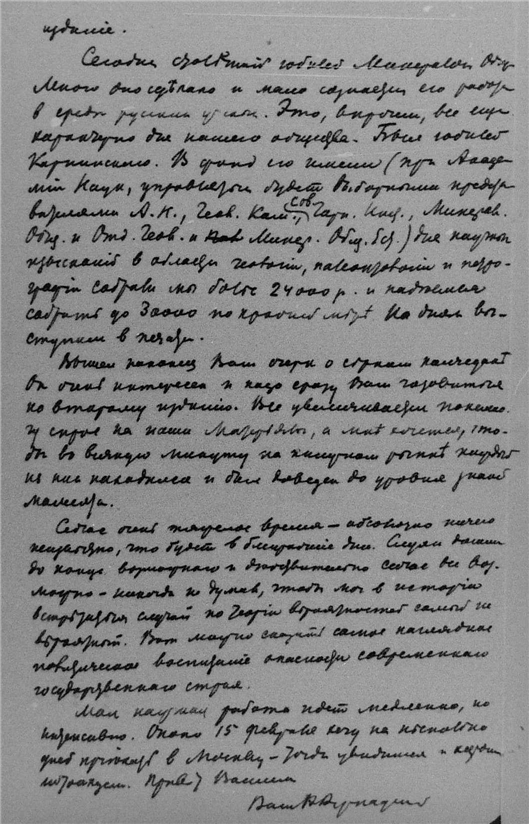 изданіе.
Сегодня столѣтній юбилей Минералог. Общ.
Много оно сдѣлано и мало его работа
в средѣ русских Это, впрочем, все еще
характерно для нашего общества. Был юбилей
Карпинскаго. В фонд его имени (при Академ
міи Наук, будет выборными предста
вителями А.Н., Геол. Ком., Соб. Горн. Инж., Минерал.
Общ. и Отд. Геол. и Минер. Общ. Ест.) для научных
изысканій в области геологіи, палеонтологіи и петро
графіи собрали мы болѣе 24000 р. и надѣемся
собрать до 30000 по крайней мѣрѣ На днях вы
ступаем в печати.
Вышел наконец Ваш очерк о сѣрном колчеданѣ
Он очень интересен и надо сразу Вам готовиться
ко второму изданію. Все увеличивается понемно
гу спрос на наши Матерьялы, а мнѣ хочется, что
бы во всякую минуту на книжном рынкѣ каждый
из них находился и был доведен до уровня знаній
момента.
Сейчас очень тяжелое время – абсолютно ничего
неизвѣстно, что будет в ближайшіе дни. Слухи дошли
до конца вѣроятнаго и дѣйствительно сейчас все воз
можно – никогда не думал, чтобы мог в исторіи
встрѣтиться случай по теоріи вѣроятностей самый не
вѣроятный. Вот можно сказать самое наглядное
политическое воспитаніе опасности современнаго
государственнаго строя.
Моя научная работа идет медленно, но
интенсивно. Около 15 февраля хочу на нѣсколько
дней пріѣхать в Москву – тогда увидимся и
потолкуем. Привѣт
Ваш В. Вернадский